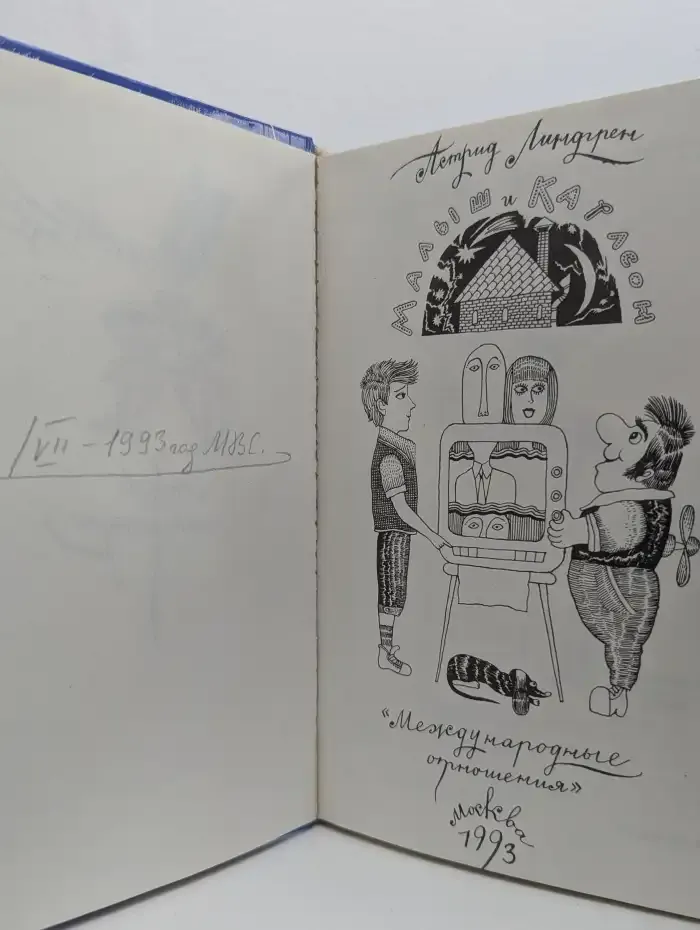 VII – 1993 год МВС.
Астрид Линдгрен
Малыш и Карлсон
«Международные
отношения»
Москва
1993